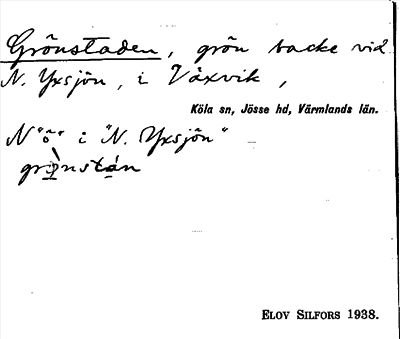 Grönstaden, grön backe vid
N. Yxsjön, i Växvik,
Köla sn, Jösse hd, Värmlands län.
N "ö" i "N. Yxsjön"
grònstán
ELOV SILFORS 1938.